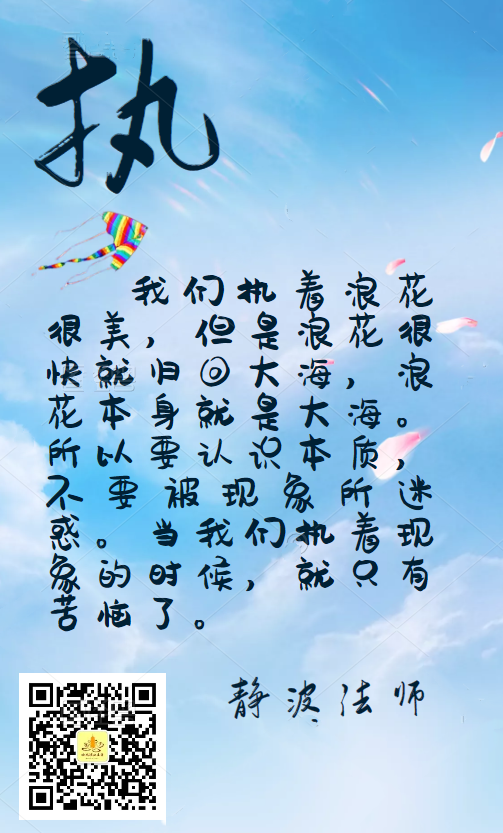 执
我们执着浪花
很美，但是浪花很
快就归回大海，浪
花本身就是大海。
所以要认识本质，
不要被现象所迷
惑。当我们执着现
象的时候，就只有
苦恼了。
静波法师